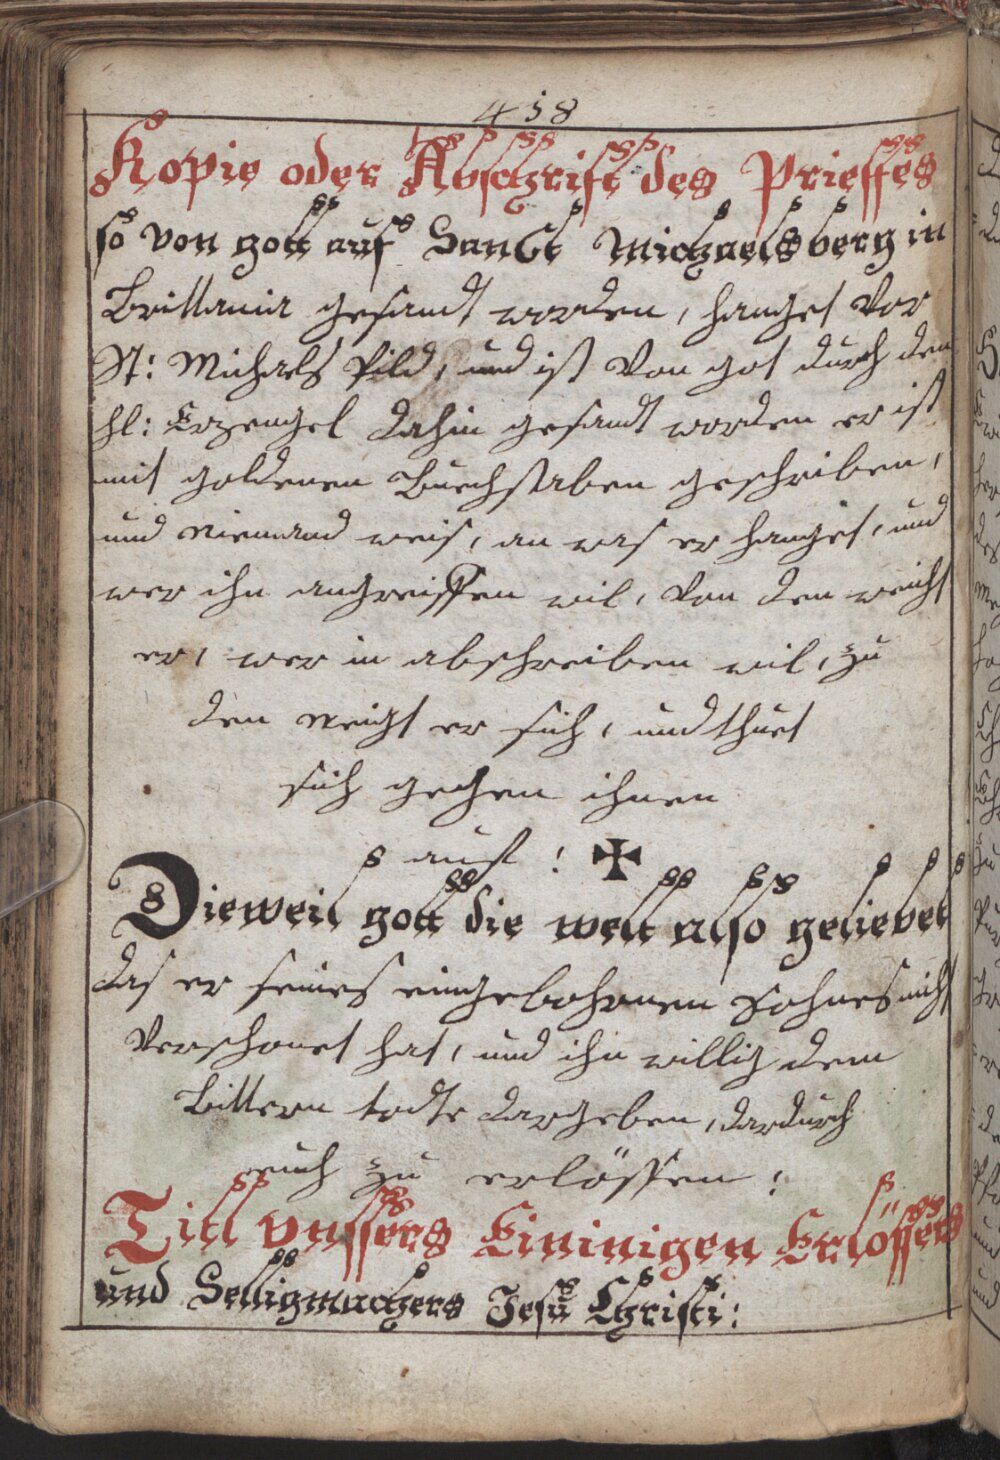 418
Kopie oder Abschrift des Prieffes
so von gott auf SanCt Michaelsberg in
Brittania gesandt worden, hanget vor
St: Michaels Pild, und ist von got durch den
hl: Erzengel dahin gesandt worden er ist
mit goldenen Buechstaben geschriben,
und niemand weis, an was er hanget, und
wer ihn angreiffen wil, von den weicht
er, wer in abschreiben wil, zu
den neigt er sich, und thuet
sich gegen ihnen
auf: ✠
Dieweil gott die welt also geliebet
das er seines eingebohrnen Sohnes nicht
verschonet hat, und ihn willig dem
Bittern todte dargeben, dardurch
euch zu erlössen:
Titl vnssers Eininigen Erlössers
und Selligmachers Jesu Christi: